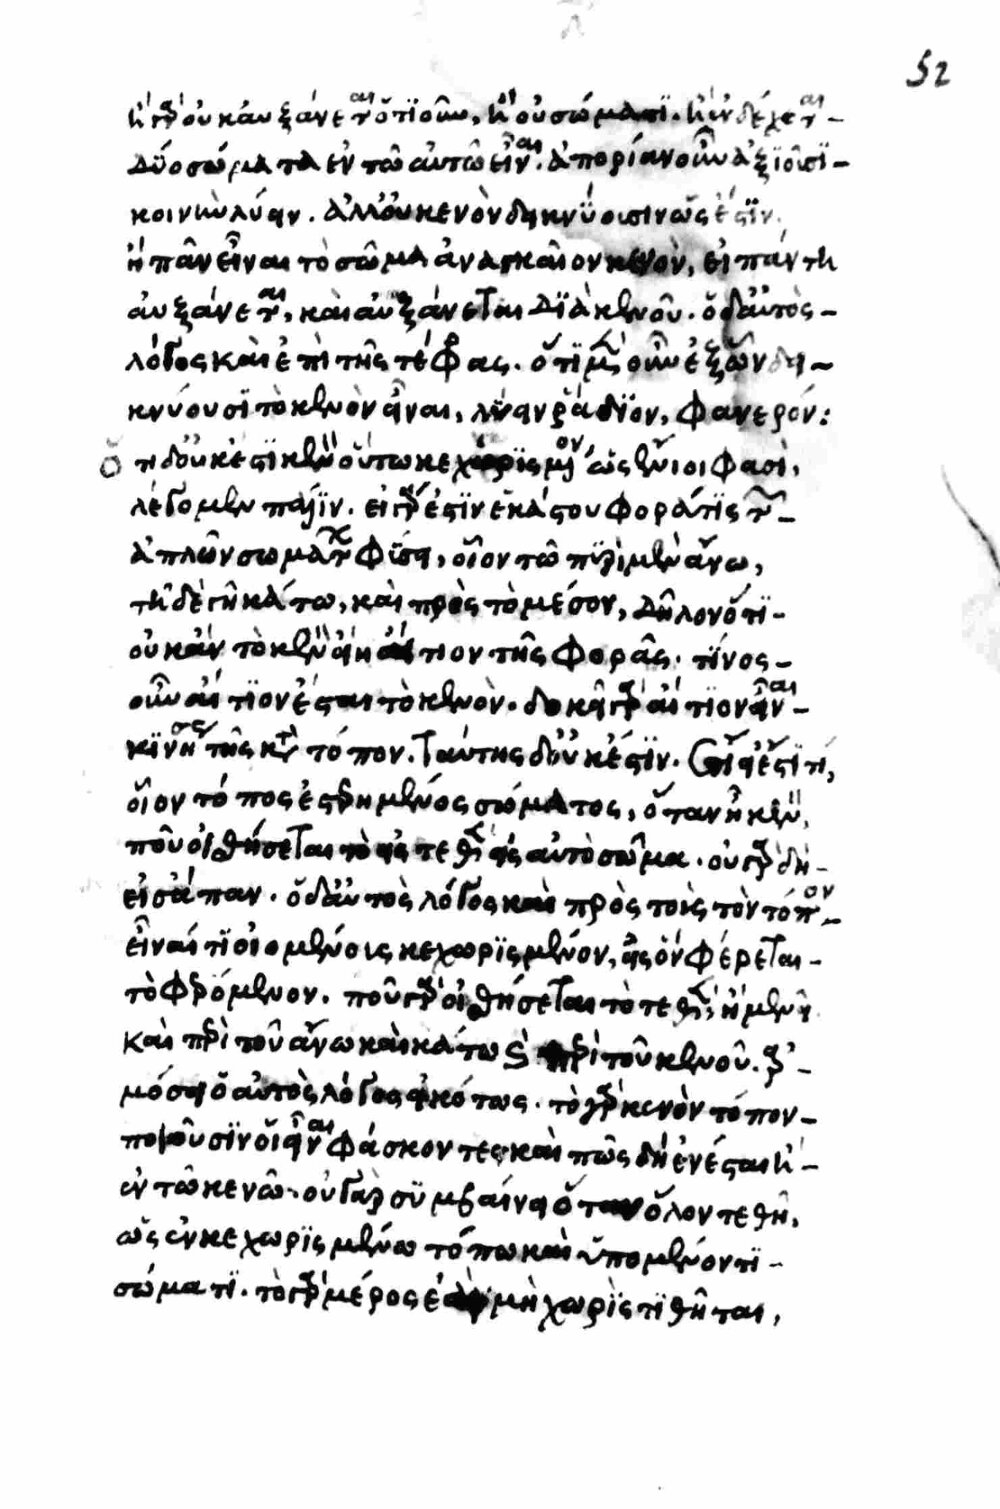 52
ἢ γὰρ οὐκ αὐξάνεται ὁτϊοῦν, ἢ οὐ σώματϊ. ἢ ἐνδέχεται
δύο σώματα ἐν τῶ αὐτῶ εἶναι. ἀπορίαν οὖν ἀξϊοῦσϊ
κοινὴν λύειν. ἀλλ' οὐ κενὸν δεικνύουσιν ὡς ἔστϊν.
ἢ πᾶν εἶναι τὸ σῶμα ἀναγκαῖον κενὸν, εἰ πάντη
αὐξάνεται, καὶ αὐξάνεται δϊὰ κενοῦ. ὁ δ' αὐτὸς
λόγος καὶ ἐπὶ τῆς τέφρας. ὅτϊ μὲν οὖν ἐξ ὧν δει
κνύουσϊ τὸ κενὸν εἶναι, λύειν ῥάδϊον, φανερόν:
ὅτι δ' οὐκ ἔστϊ κενὸν οὕτω κεχωρϊσμένον, ὡς ἔνιοι φασὶ,
λέγομεν πάλϊν. εἰ γάρ ἐστϊν ἑκάστου φορά τϊς τῶν
ἁπλῶν σωμάτων φύσει, οἷον τῶ πϋρὶ μὲν ἄνω,
τῆ δὲ γῆ κάτω, καὶ πρὸς τὸ μέσον, δῆλον ὅτϊ
οὐκ ἂν τὸ κενὸν εἴη αἴτιον τῆς φορᾶς. τίνος
οὖν αἴτϊον ἔσται τὸ κενὸν. δοκεῖ γὰρ αἴτϊον εἶναι
κϊνήσεως τῆς κατὰ τόπον. ταύτης δ' οὐκ ἔστϊν. ἔτι εἰ ἔστϊ τί,
οἷον τόπος ἐστερημένος σώματος, ὅταν ἦ κενὸν,
ποῦ οἰσθήσεται τὸ εἰστεθὲν εἰς αὐτὸ σῶμα. οὐ γὰρ δὴ
εἰς ἅπαν. ὁ δ' αὐτὸς λόγος καὶ πρὸς τοὺς τὸν τόπον
εἶναί τϊ οἰομένοις κεχωρϊσμένον, εἰς ὃν φέρεται
τὸ φερόμενον. ποῦ γὰρ οἰσθήσεται τὸ τεθὲν, ἢ μενεῖ
καὶ περὶ τοῦ ἄνω καὶ κάτω καὶ περὶ τοῦ κενοῦ. ἁρ
μόσει ὁ αὐτὸς λόγος εἰκότως. τὸ γὰρ κενὸν τόπον
ποιοῦσϊν οἱ εἶναι φάσκοντες καὶ πῶς δὴ ἐνέσται ἢ
ἐν τῶ κενῶ. οὐ γὰρ σϋμβαίνει ὅταν ὅλον τεθῆ,
ὡς ἐν κεχωρϊσμένω τόπω καὶ ὑπομένοντϊ
σώματϊ. τὸ γὰρ μέρος ἐὰν μὴ χωρὶς τϊθῆται,